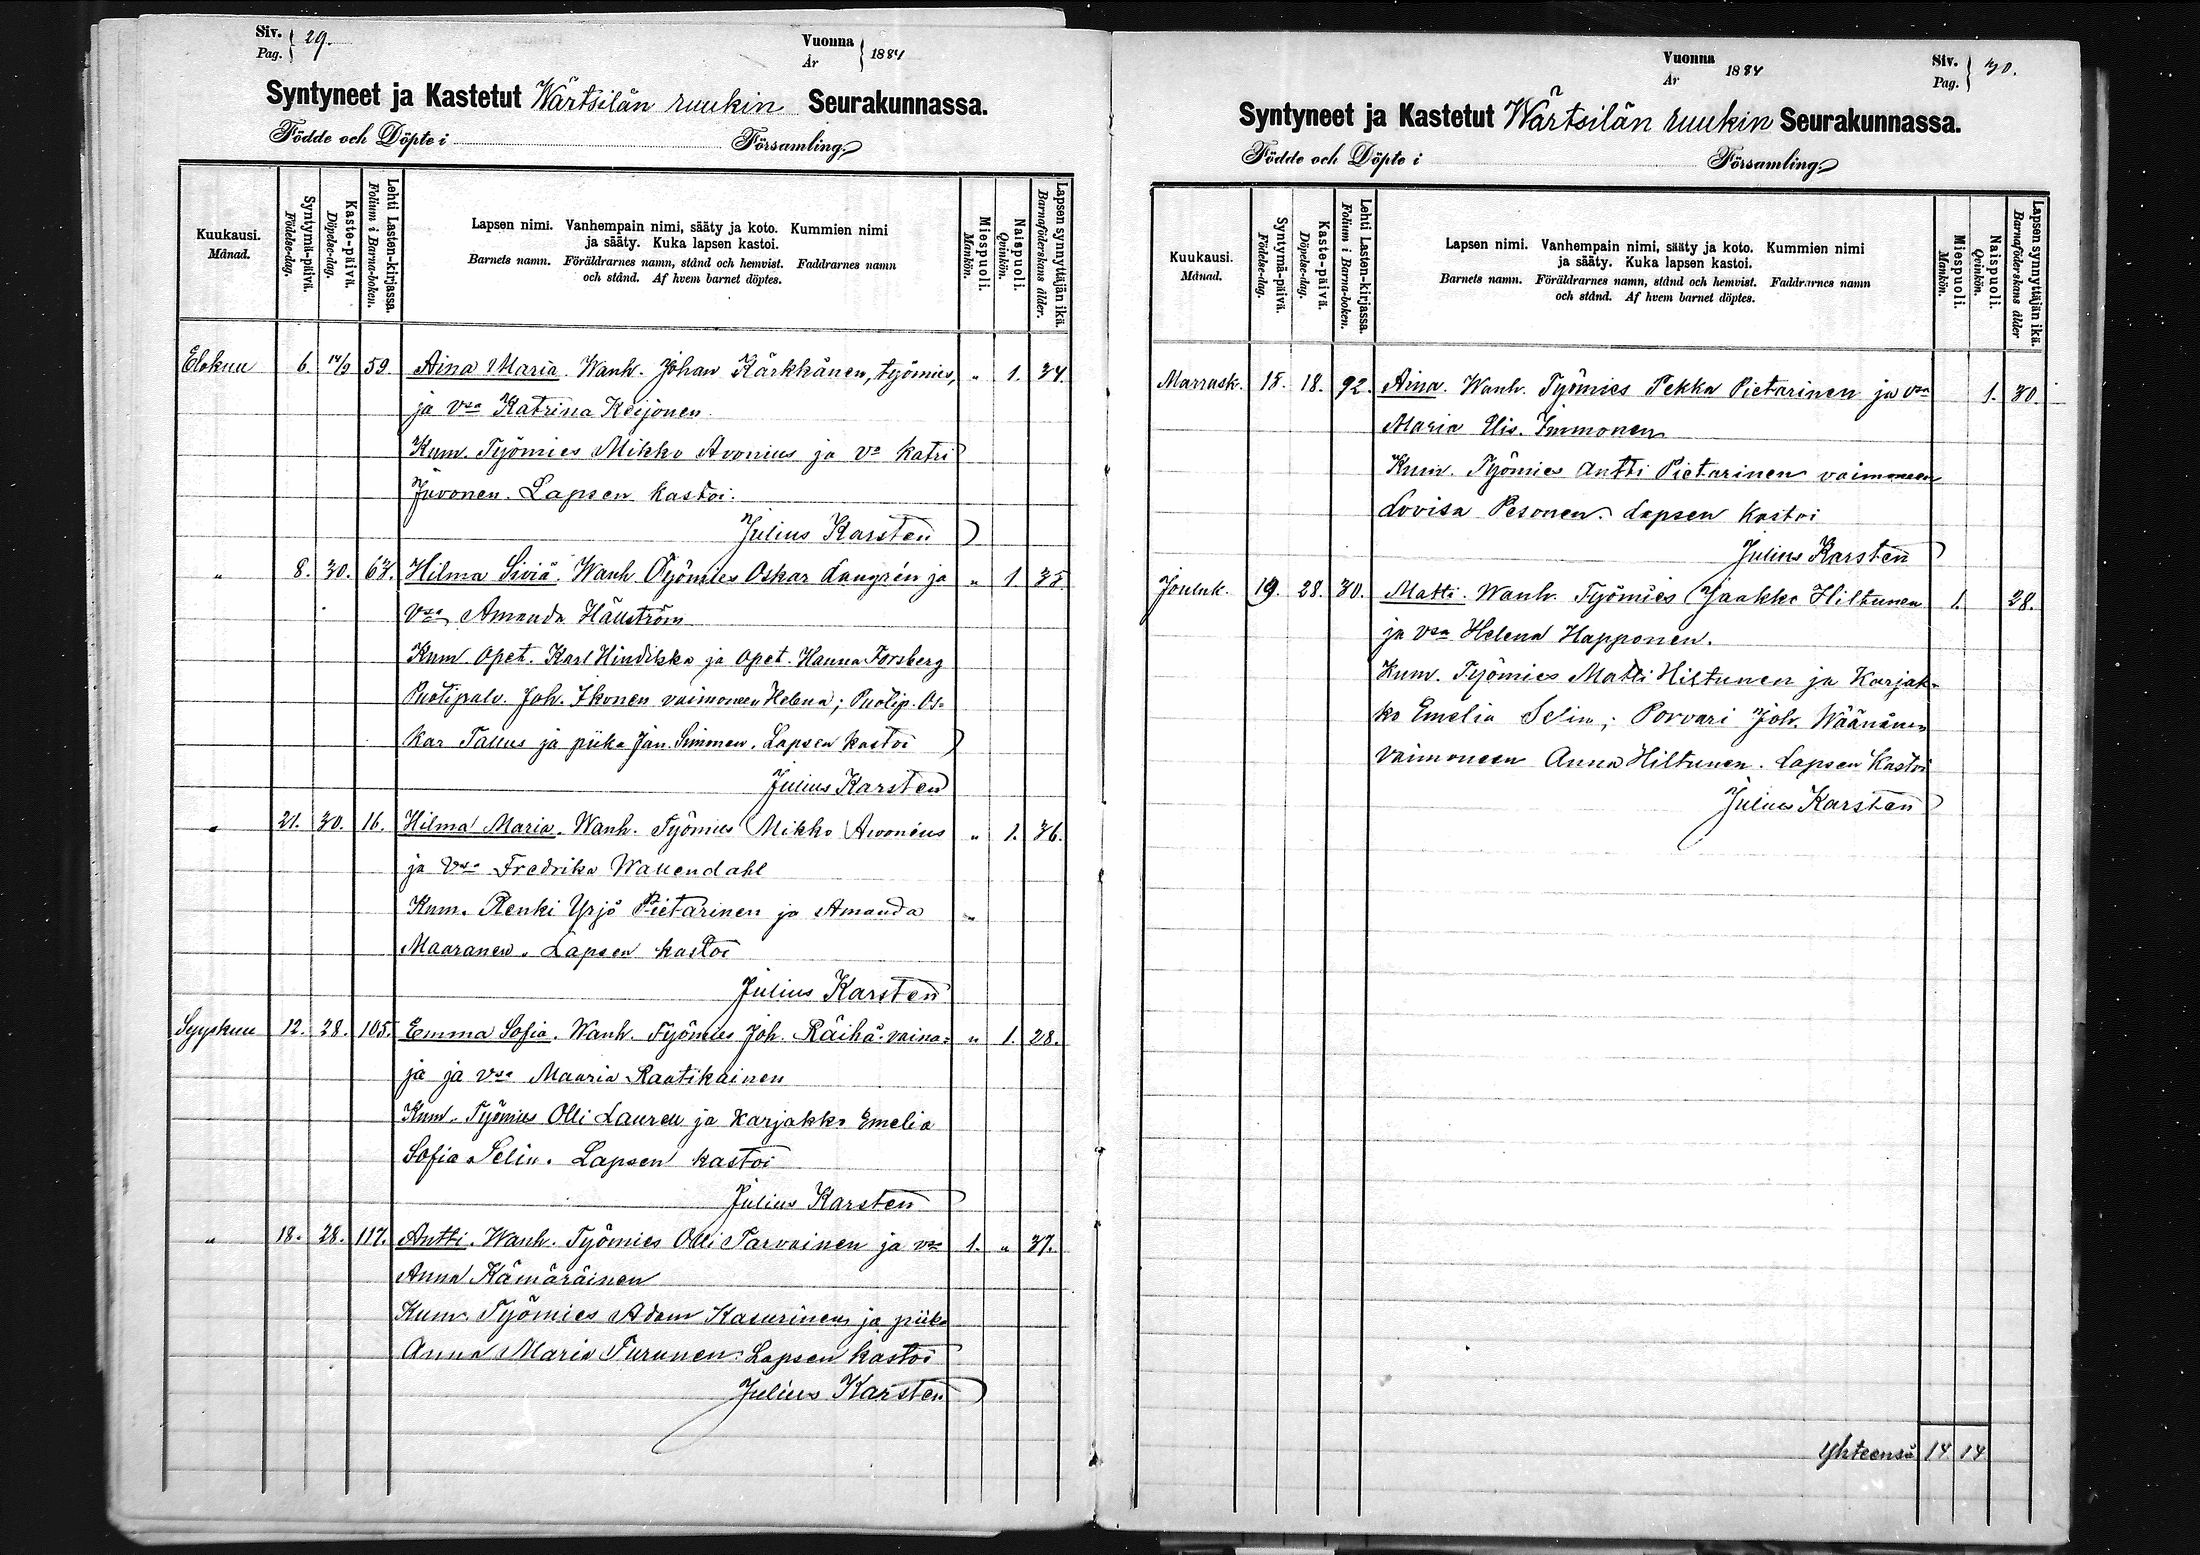 Siv. 29.
Pag.
Vuonna 1884
År
Syntyneet ja Kastetut Wärtsilän ruukin Seurakunnassa.
Födde och Döpte i Församling.
Kuukausi.
Månad.
Syntymä-päivä.
Födelse-dag.
Kaste-päivä.
Döpelse-dag.
Lehti Lasten-kirjassa.
Folium i Barna-boken.
Lapsen nimi. Vanhempain nimi, sääty ja koto. Kummien nimi
ja sääty. Kuka lapsen kastoi.
Barnets namn. Föräldrarnes namn, stånd och hemvist. Faddrarnes namn
och stånd. Af hvem barnet döptes.
Miespuoli.
Mankön.
Naispuoli.
Qvinkön.
Lapsen synnyttäjän ikä.
Barnaföderskans ålder.
Elokuu 6. 14/9 59 Aina Maria. Wanh. Johan Kärkkänen, työmies, " 1. 34.
ja vsa Katrina Keijonen.
Kum. Työmies Mikko Avonius ja va Katri
Juvonen. Lapsen kastoi.
Julius Karsten
" 8. 30. 63. Hilma Siviä. Wanh Työmies Oskar Laugrén ja " 1 35.
vsa Amanda Hällström
Kum Opet. Karl Hindikka ja Opet. Hanna Forsberg
Puotipalv. Joh. Ikonen vaimoneen Helena; Puotip. Os-
kar Tallus ja piika Jan. Simmen. Lapsen kastoi
Julius Karsten
" 21. 30. 16. Hilma Maria. Wanh. Työmies Mikko Avonius " 1. 36.
ja vsa Fredrika Wallendahl
Kum. Renki Yrjö Pietarinen ja Amanda "
Maaranen. Lapsen kastoi
Julius Karsten
Syyskuu 12. 28. 105. Emma Sofia. Wanh. Työmies Joh. Räihä vaina- " 1. 28.
ja ja vsa Maaria Raatikainen
Kum. Työmies Olli Lauren ja Karjakko Emelia
Sofia Selin. Lapsen kastoi
Julius Karsten
" 18. 28. 117. Antti. Wanh. Työmies Olli Parvainen ja vsa 1. " 37.
Anna Kämäräinen
Kum. Työmies Adam Kasurinen ja piika
Anna Maria Turunen. Lapsen kastoi
Julius Karsten
Vuonna 1884
År
Siv. 30.
Pag.
Syntyneet ja Kastetut Wärtsilän ruukin Seurakunnassa.
Födde och Döpte i Församling.
Kuukausi.
Månad.
Syntymä-päivä.
Födelse-dag.
Kaste-päivä.
Döpelse-dag.
Lehti Lasten-kirjassa.
Folium i Barna-boken.
Lapsen nimi. Vanhempain nimi, sääty ja koto. Kummien nimi
ja sääty. Kuka lapsen kastoi.
Barnets namn. Föräldrarnes namn, stånd och hemvist. Faddrarnes namn
och stånd. Af hvem barnet döptes.
Miespuoli.
Mankön.
Naispuoli.
Qvinkön.
Lapsen synnyttäjän ikä.
Barnaföderskans ålder
Marrask. 15. 18. 92. Aina. Wanh. Työmies Pekka Pietarinen ja vsa 1. 30.
Maria Elis. Immonen
Kum. Työmies Antti Pietarinen vaimoneen
Lovisa Pesonen. Lapsen kastoi
Julius Karsten
Jouluk. 19. 28. 30. Matti. Wanh. Työmies Jaakko Hiltunen 1. 28.
ja vsa Helena Happonen.
Kum. Työmies Matti Hiltunen ja Karjak-
ko Emelia Selin; Porvari Joh. Wäänänen
vaimoneen Anna Hiltunen. Lapsen Kastoi
Julius Karsten
Yhteensä 14 14